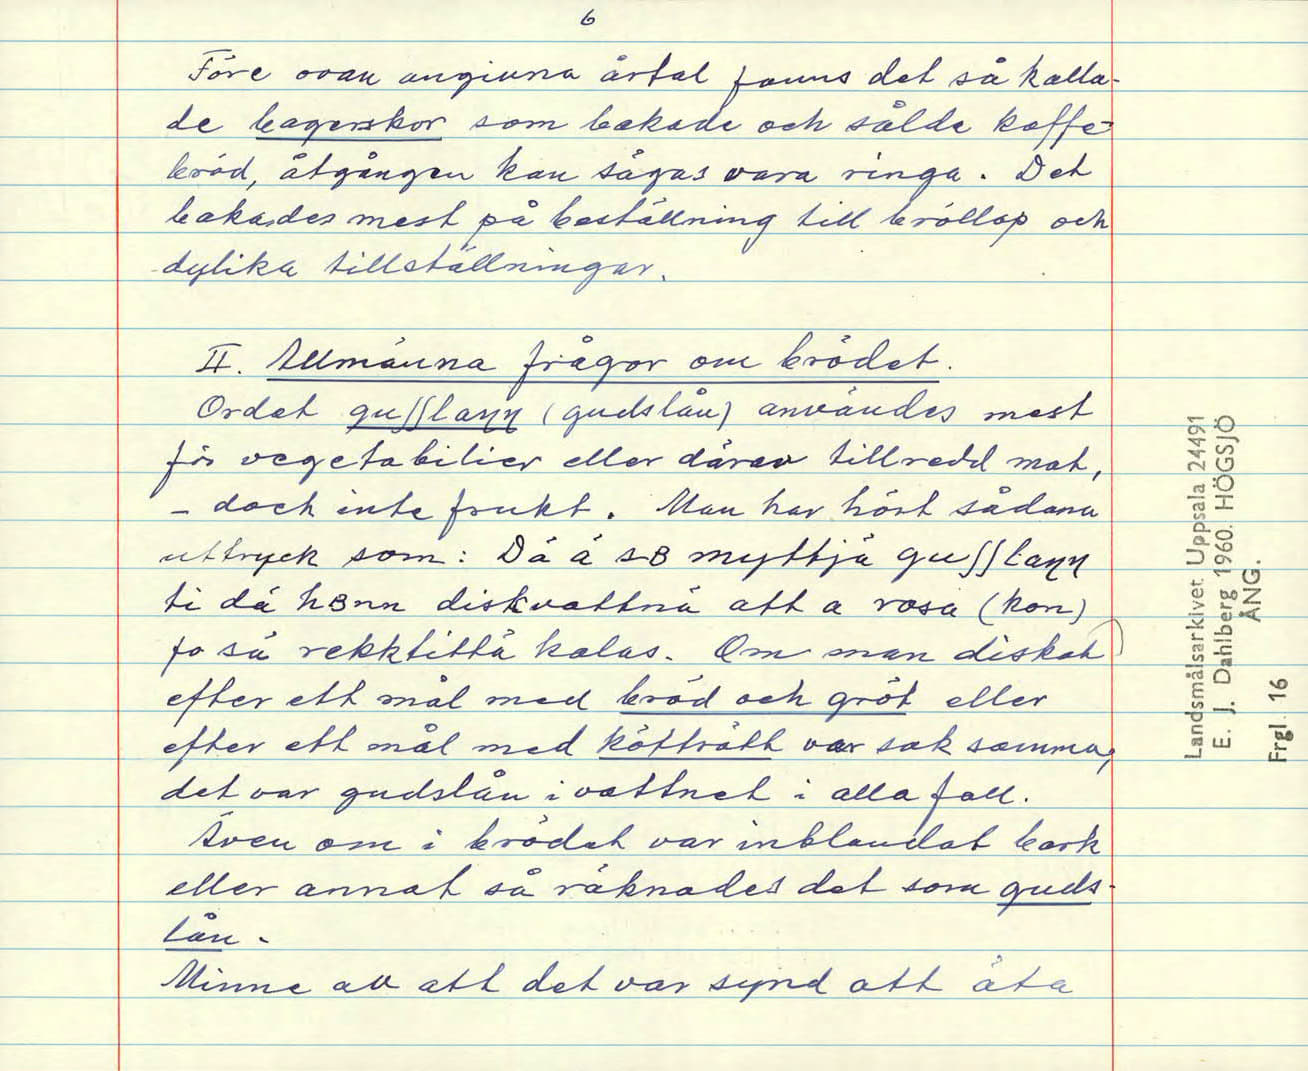 6
Före ovan angivna årtal fanns det så kalla-
de bagerskor som bakade och sålde kaffe-
bröd, åtgången kan sägas vara ringa. Det
bakades mest på beställning till bröllop och
dylika tillställningar.
II. Allmänna frågor om brödet.
Ordet guʃʃlaŋŋ (gudslån) användes mest
för vegetabilier eller därav tillredd mat,
- dock inte frukt. Man har hört sådana
uttryck som: Dä ä sB myttjä guʃʃlaŋŋ
ti dä hBnn diskvattnä att a rosa (kon)
fo sä rekktittä kalas. Om man diskat
efter ett mål med bröd och gröt eller
efter ett mål med kötträtt var sak samma,
det var gudslån i vattnet i alla fall.
Även om i brödet var inblandat bark
eller annat så räknades det som guds-
lån.
Minne av att det var synd att äta
Landsmålsarkivet Uppsala 24491
E. J. Dahlberg 1960. HÖGSJÖ
ÅNG.
Frgl. 16